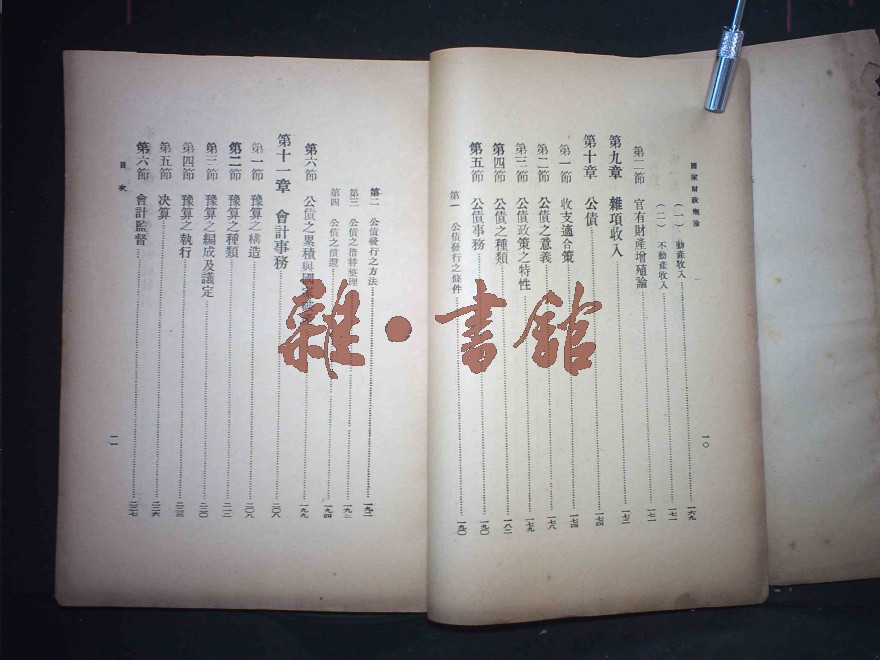 國家財政概論
一〇
(一) 動產收入 一六九
(二) 不動產收入 一七一
第二節 官有財產增殖論 一七一
第九章 雜項收入 一七二
第十章 公債 一七四
第一節 收支適合策 一七四
第二節 公債之意義 一七八
第三節 公債政策之特性 一七九
第四節 公債之種類 一八二
第五節 公債事務 一九〇
第一 公債發行之條件 一九〇
第二 公債發行之方法 一九二
第三 公債之借替整理
第四 公債之償還 一九四
第六節 公債之累積與國 一九九
第十一章 會計事務 二〇八
第一節 豫算之構造 二〇八
第二節 豫算之種類 二一二
第三節 豫算之編成及議定 二二〇
第四節 豫算之執行
第五節 決算 二二六
第六節 會計監督 二二七
目次
一一
雜·書館